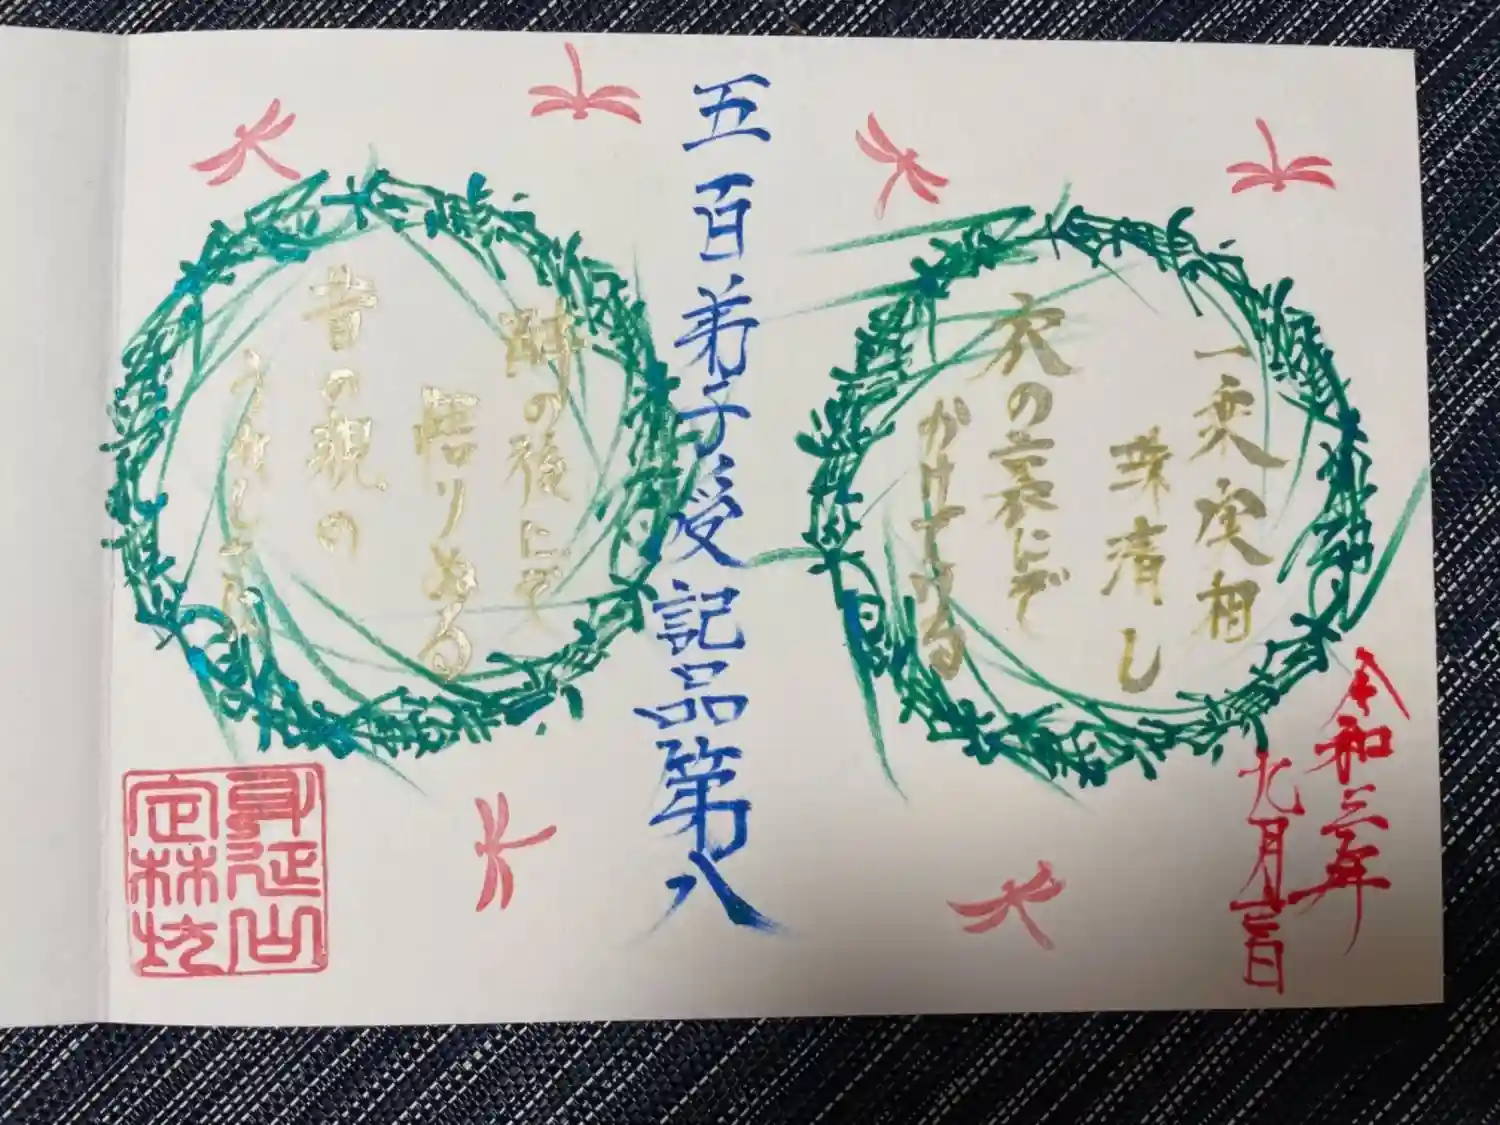 令和三年
九月吉日
一乗実相
珠清し
衣の裏にぞ
かけてける
五百弟子受記品第八
酔の後にぞ
悟りぬる
昔の親の
うれしさに
身延山
定林坊